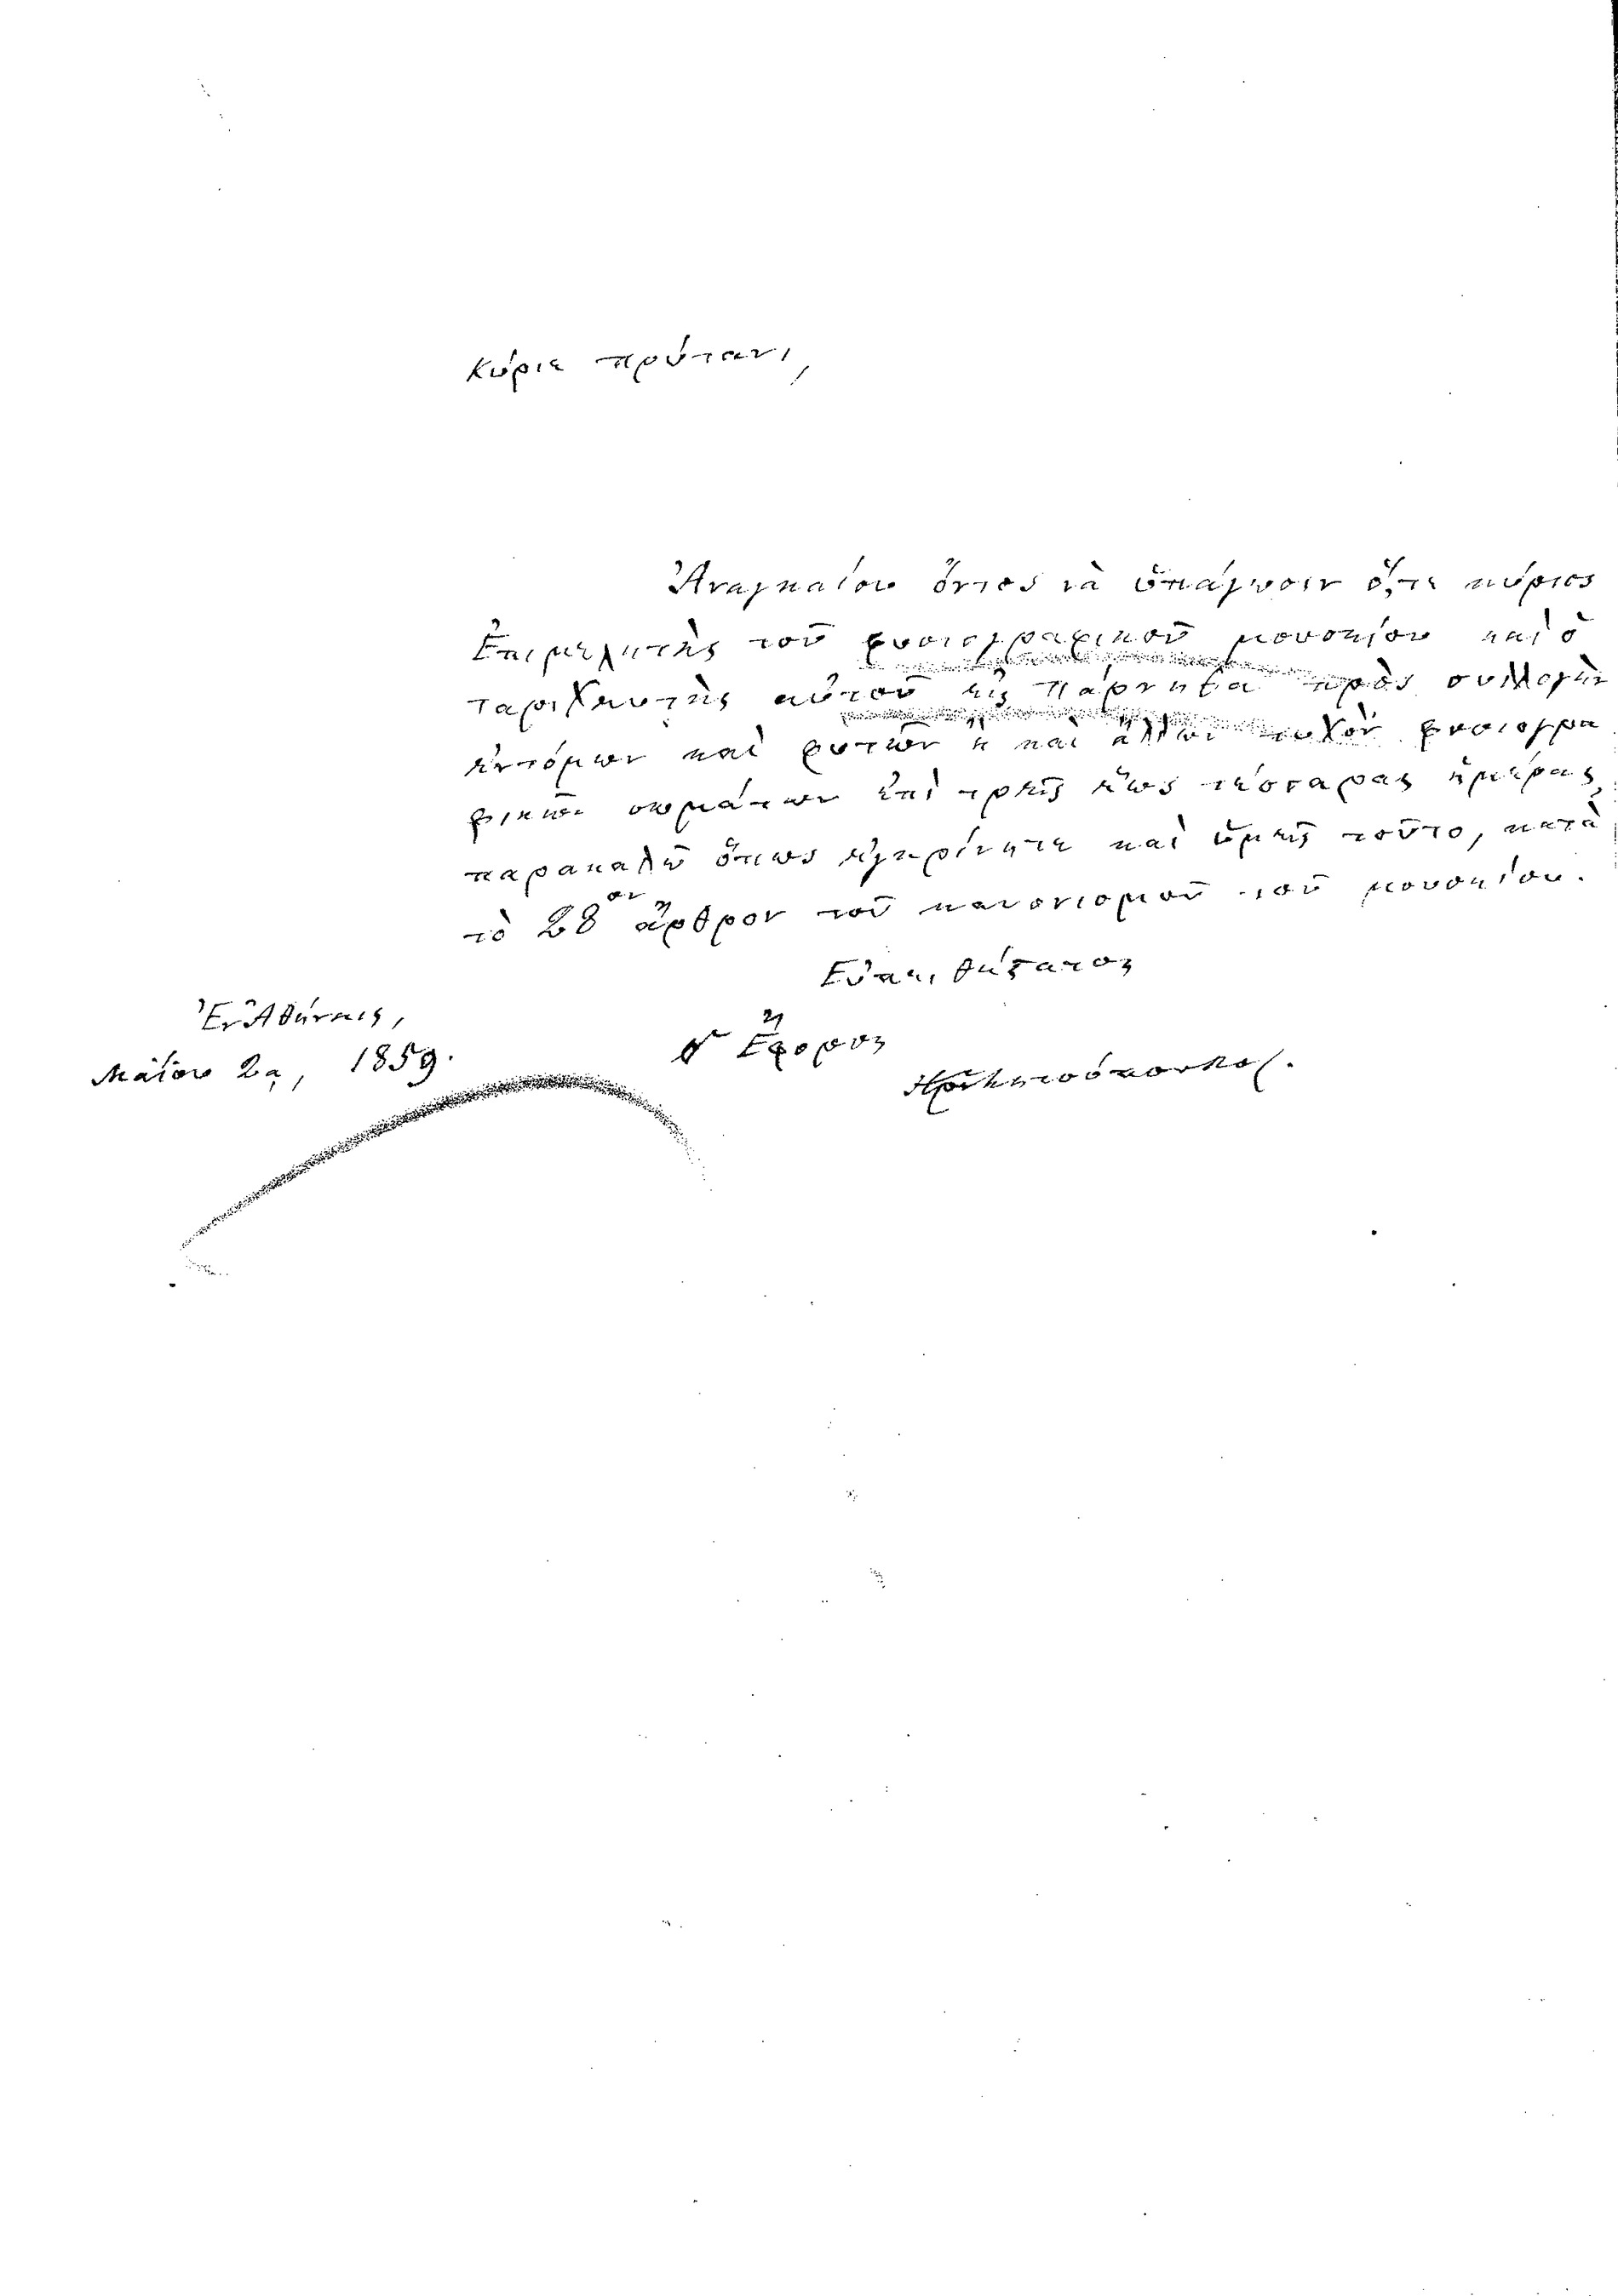 Κύριε πρύτανι,
Ἀναγκαίου ὄντος νὰ ὑπάγωσιν ὅ,τε κύριος
Ἐπιμελητὴς τοῦ φυσιογραφικοῦ μουσείου καὶ ὁ
ταριχευτὴς αὐτοῦ εἰς Πάρνηθα πρὸς συλλογὴν
ἐντόμων καὶ φυτῶν ἢ καὶ ἄλλων τυχὸν φυσιογρα
φικῶν σωμάτων ἐπὶ τρεῖς ἕως τέσσαρας ἡμέρας,
παρακαλῶ ὅπως ἐγκρίνητε καὶ ὑμεῖς τοῦτο, κατὰ
τὸ 28ον ἄρθρον τοῦ κανονισμοῦ τοῦ μουσείου.
Εὐπειθέστατος
Ἐν Ἀθήναις,
Μαΐου 2ᾳ, 1859.
Ὁ Ἔφορος